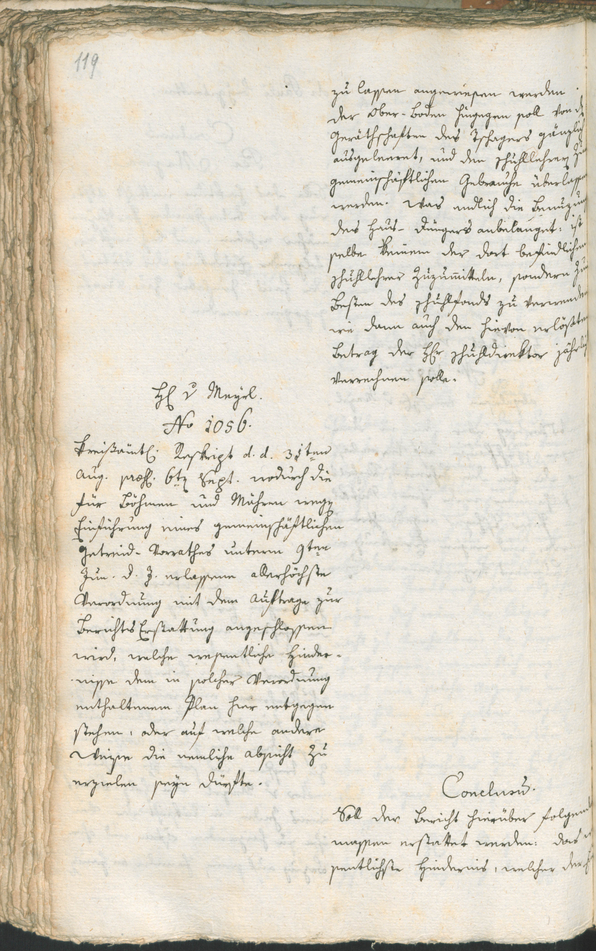 119
zu lassen angewiesen werden.
der Ober-Boden hingegen soll von
Geräthschaften des Tschagers gänzlich
ausgeleeret, und dem schullehrer zu
gemeinschäftlichen Gebrauche überlassen
werden. Was endlich die Benüzung
des Haus-Düngers anbelanget: ist
selbe keinem der dort befindlichen
schullehrer zuzumitteln, sondern zum
Besten des schuhlfonds zu verwenden
wie dann auch den hievon erlösten
Betrag der H schuhldirektor jährlich
verrechnen solle.
H v Mayrl.
No 1056.
Kreißämtl. Reskript d. d. 31ten
Aug. præs. 6t Sept. wodurch die
für Böhmen und Mähren wegen
Einführung eines gemeinschäftlichen
Getreid-Vorrathes unterm 9ten
Jun. d. J. erlassene allerhöchste
Verordnung mit dem Auftrage zur
BerichtsErstattung angeschlossen
wird, welche wesentliche Hinder-
nisse dem in solcher Verordnung
enthaltenem Plan hier entgegen
stehen, oder auf welche andere
Weise die nemliche absicht zu
erzielen seyn dürfte.
Conclusum.
Soll der Bericht hierüber folgender
massen erstattet werden: das
sentlichste Hindernis, welcher der